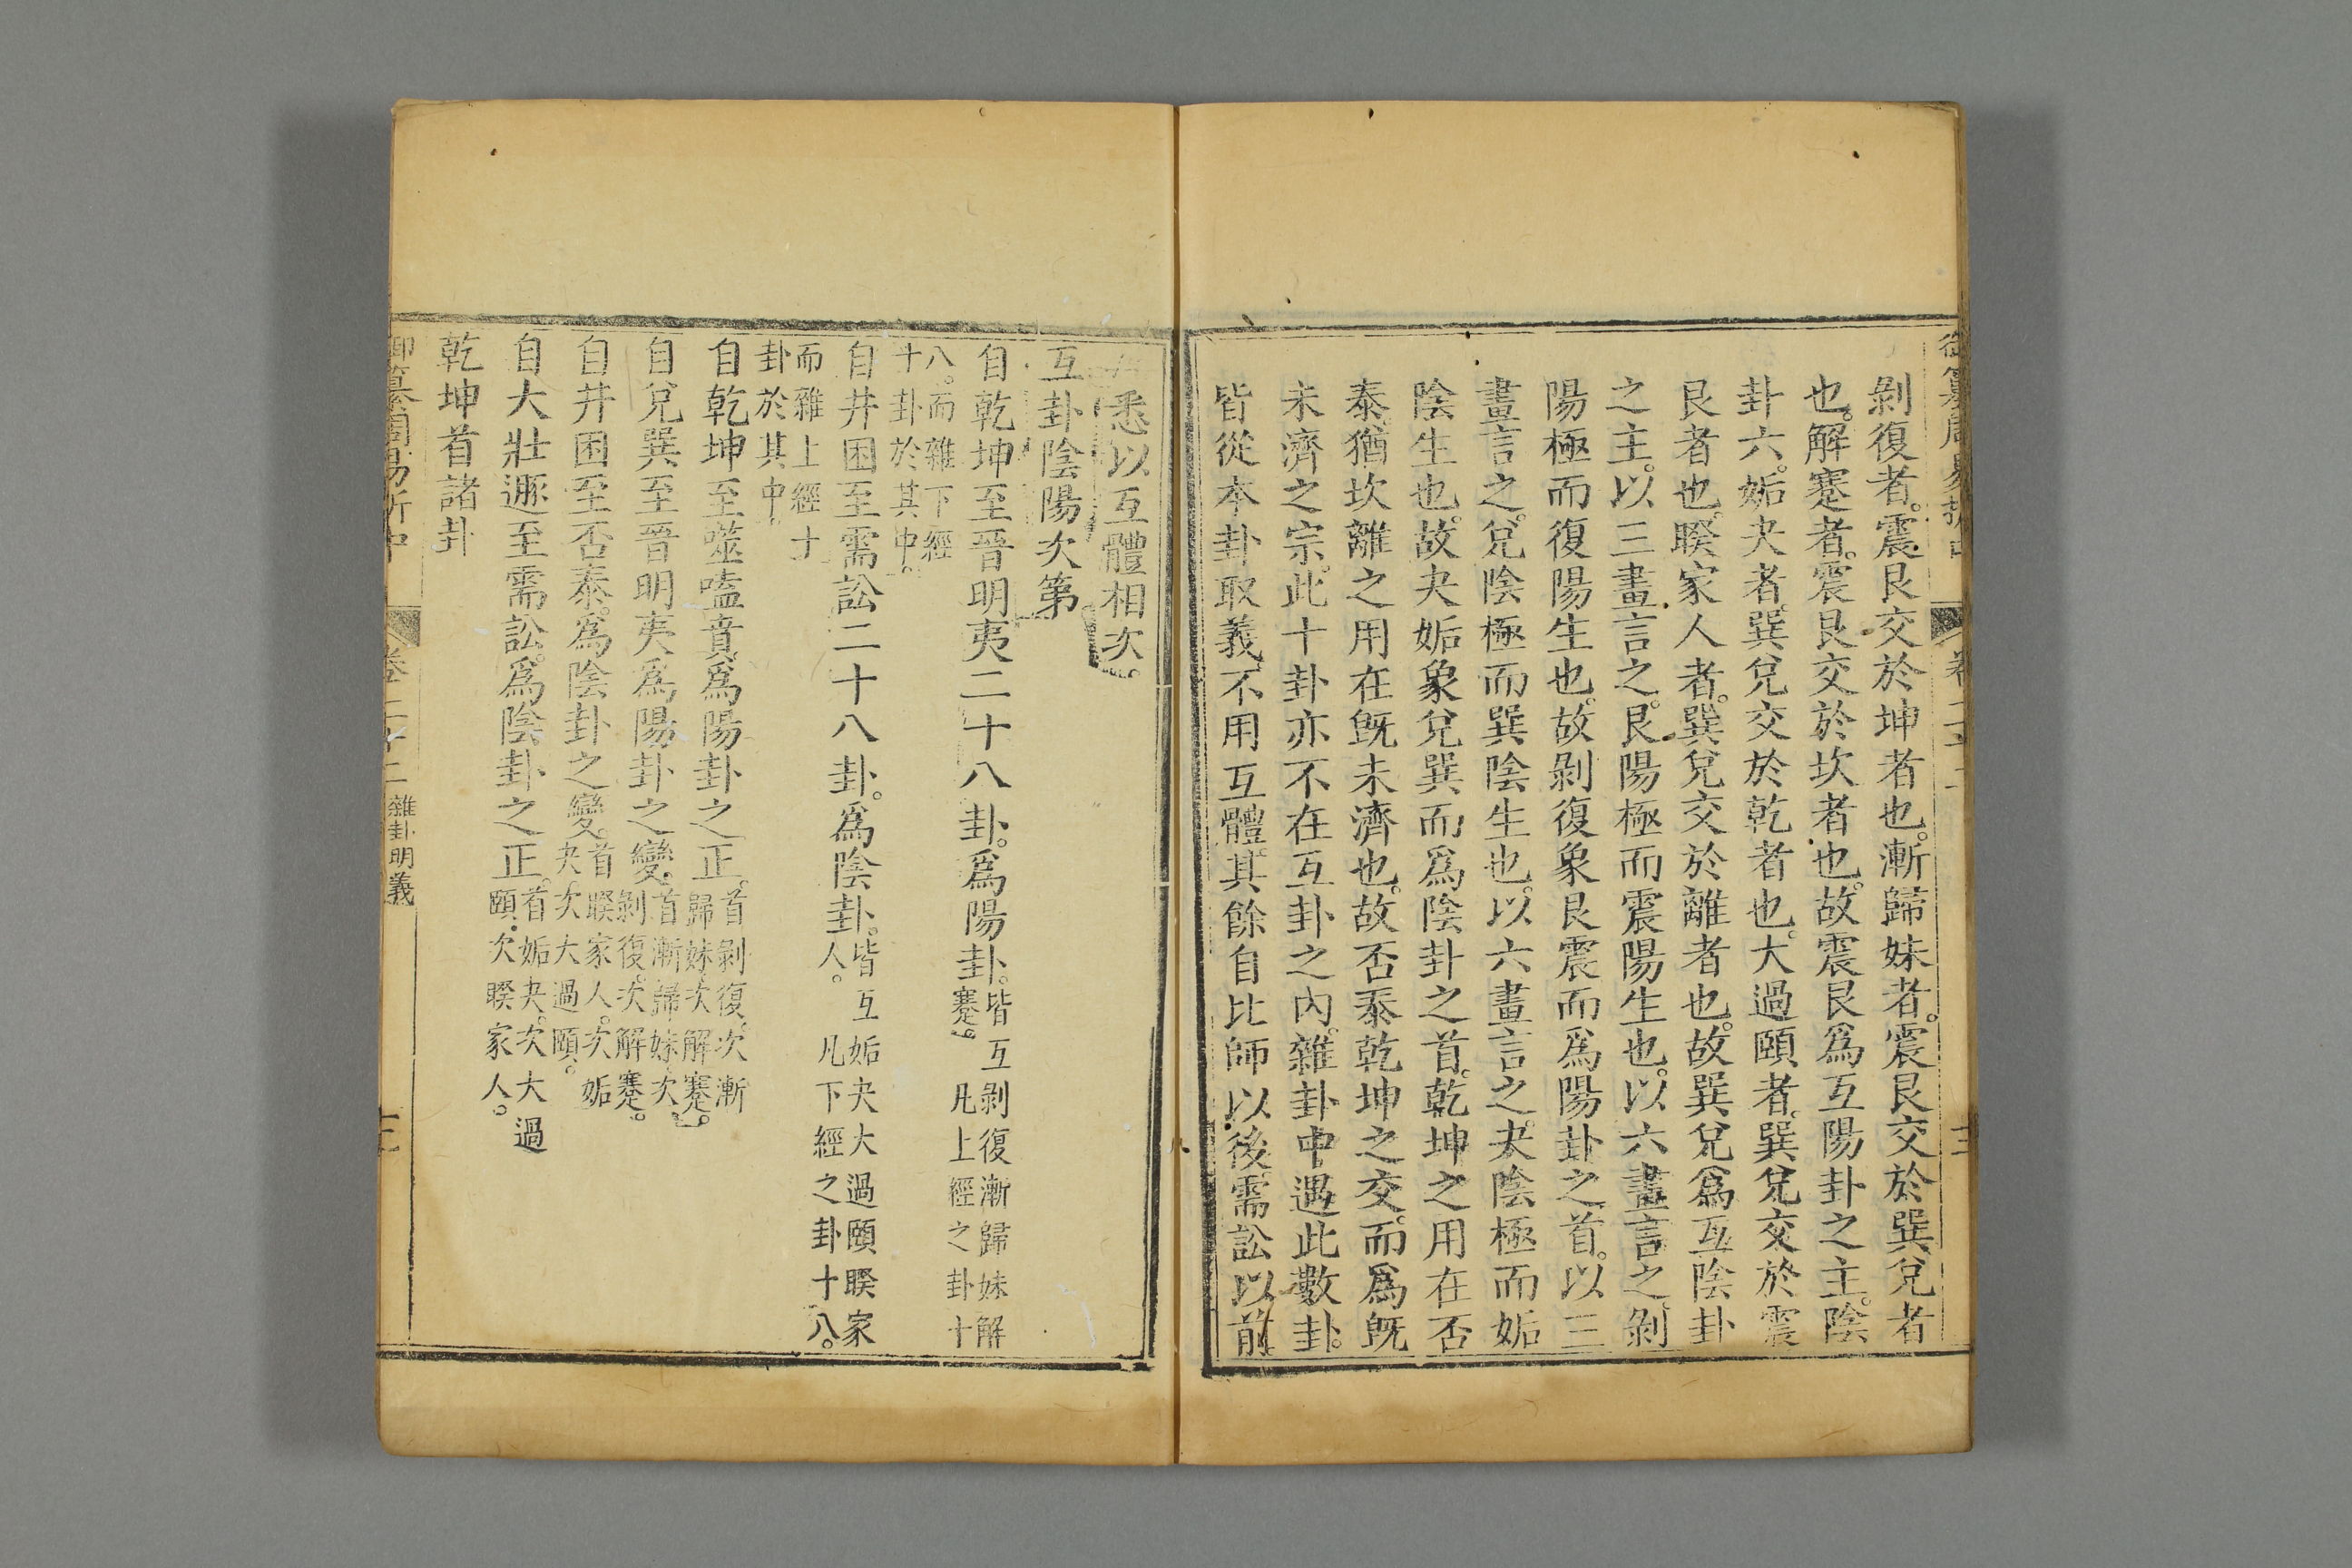 剝復者。震艮交於坤者也。漸歸妹者。震艮交於巽兌者
也。解蹇者。震艮交於坎者也。故震艮爲互陽卦之主。陰
卦六。姤夬者。巽兌交於乾者也。大過頤者。巽兌交於震
艮者也。睽家人者。巽兌交於離者也。故巽兌爲互陰卦
之主。以三畫言之。艮陽極而震陽生也。以六畫言之。剝
陽極而復陽生也。故剝復象艮震而爲陽卦之首。以三
畫言之。兌陰極而巽陰生也。以六畫言之。夬陰極而姤
陰生也。故夬姤象兌巽而爲陰卦之首。乾坤之用在否
泰。猶坎離之用在旣未濟也。故否泰乾坤之交。而爲旣
未濟之宗。此十卦亦不在互卦之內。雜卦中遇此數卦。
皆從本卦取義不用互體。其餘自比師以後。需訟以前
悉以互體相次。
互卦陰陽次第
自乾坤至晉明夷二十八卦。爲陽卦。皆互剝復漸歸妹解
蹇。凡上經之卦十
八。而雜下經
十卦於其中。
自井困至需訟二十八卦。爲陰卦。皆互姤夬大過頤睽家
人。凡下經之卦十八。
而雜上經十
卦於其中。
自乾坤至噬嗑賁。爲陽卦之正。首剝復。次漸
歸妹。次解蹇。
自兌巽至晉明夷。爲陽卦之變。首漸歸妹。次
剝復。次解蹇。
自井困至否泰。爲陰卦之變。首睽家人。次姤
夬。次大過頤。
自大壯遯至需訟。爲陰卦之正。首姤夬。次大過
頤。次睽家人。
乾坤首諸卦
御纂周易折中
卷二十二
雜卦明義
三